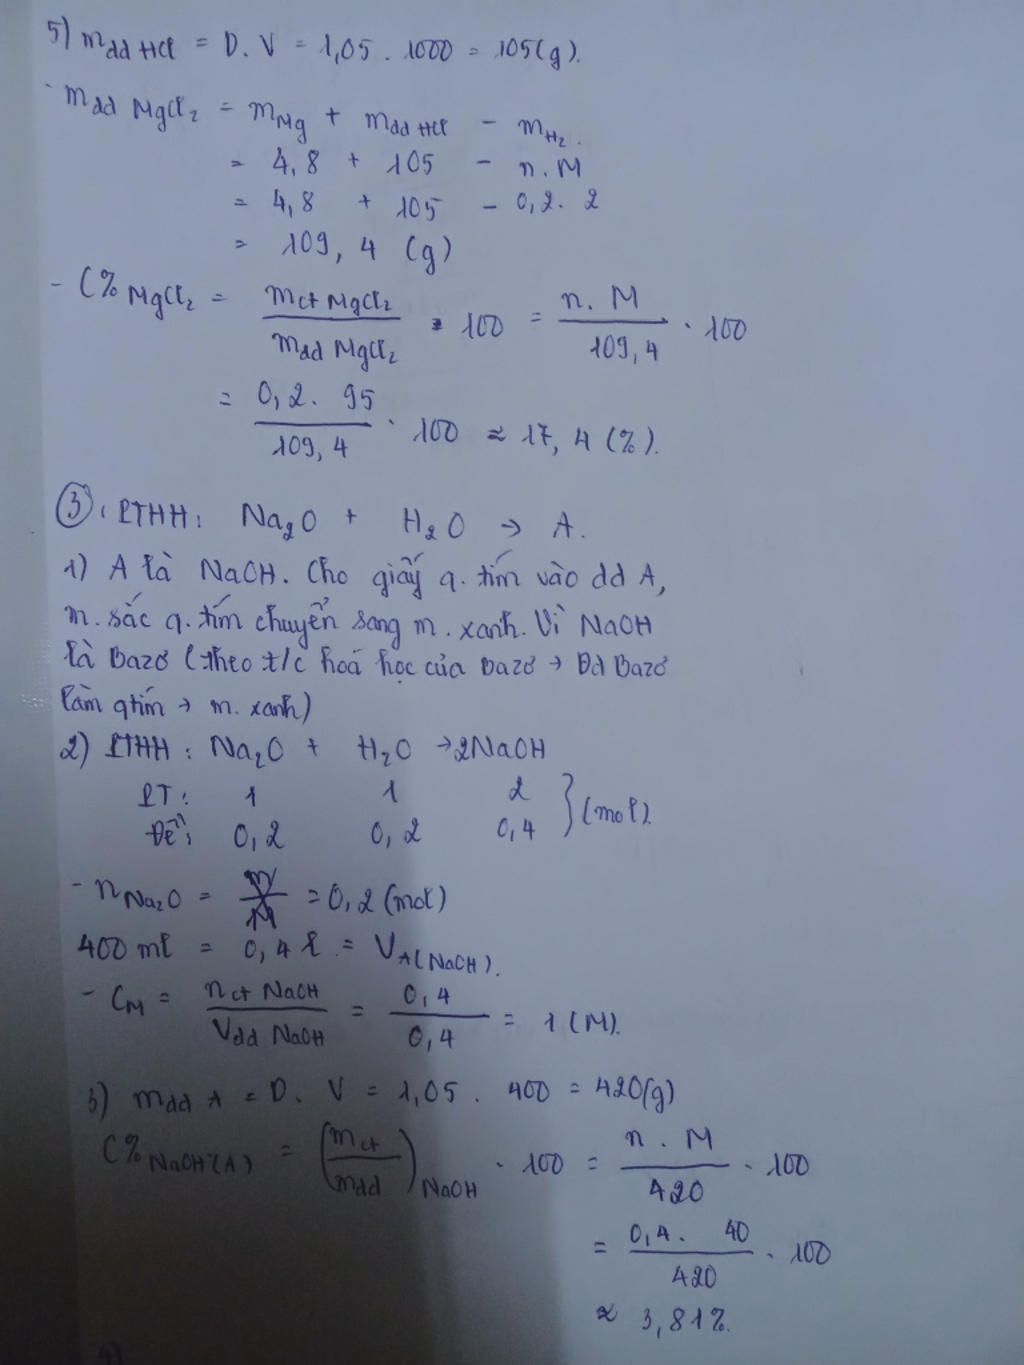 5) m dd HCl = D. V = 1,05 . 1000 = 105(g).
- m dd MgCl₂ = m Mg + m dd HCl - m H₂.
= 4,8 + 105 - n.M
= 4,8 + 105 - 0,2. 2
= 109,4 (g)
- C% MgCl₂ = m ct MgCl₂ / m dd MgCl₂ . 100 = n. M / 109,4 . 100
= 0,2. 95 / 109,4 . 100 ≈ 17,4 (%).
③: PTHH: Na₂O + H₂O → A.
1) A là NaOH. Cho giấy q. tím vào dd A,
m. sắc q. tím chuyển sang m. xanh. Vì NaOH
là Bazơ (theo t/c hoá học của bazơ → Dd Bazơ
làm qtím → m. xanh)
2) PTHH: Na₂O + H₂O → 2NaOH
PT: 1 1 2
Đề: 0,2 0,2 0,4 } (mol).
- n Na₂O = m/M = 0,2 (mol)
400 ml = 0,4 l = V A(NaOH).
- C M = n ct NaOH / V dd NaOH = 0,4 / 0,4 = 1 (M).
3) m dd A = D. V = 1,05 . 400 = 420(g)
C% NaOH(A) = (m ct / m dd) NaOH . 100 = n . M / 420 . 100
= 0,4. 40 / 420 . 100
≈ 3,81%.